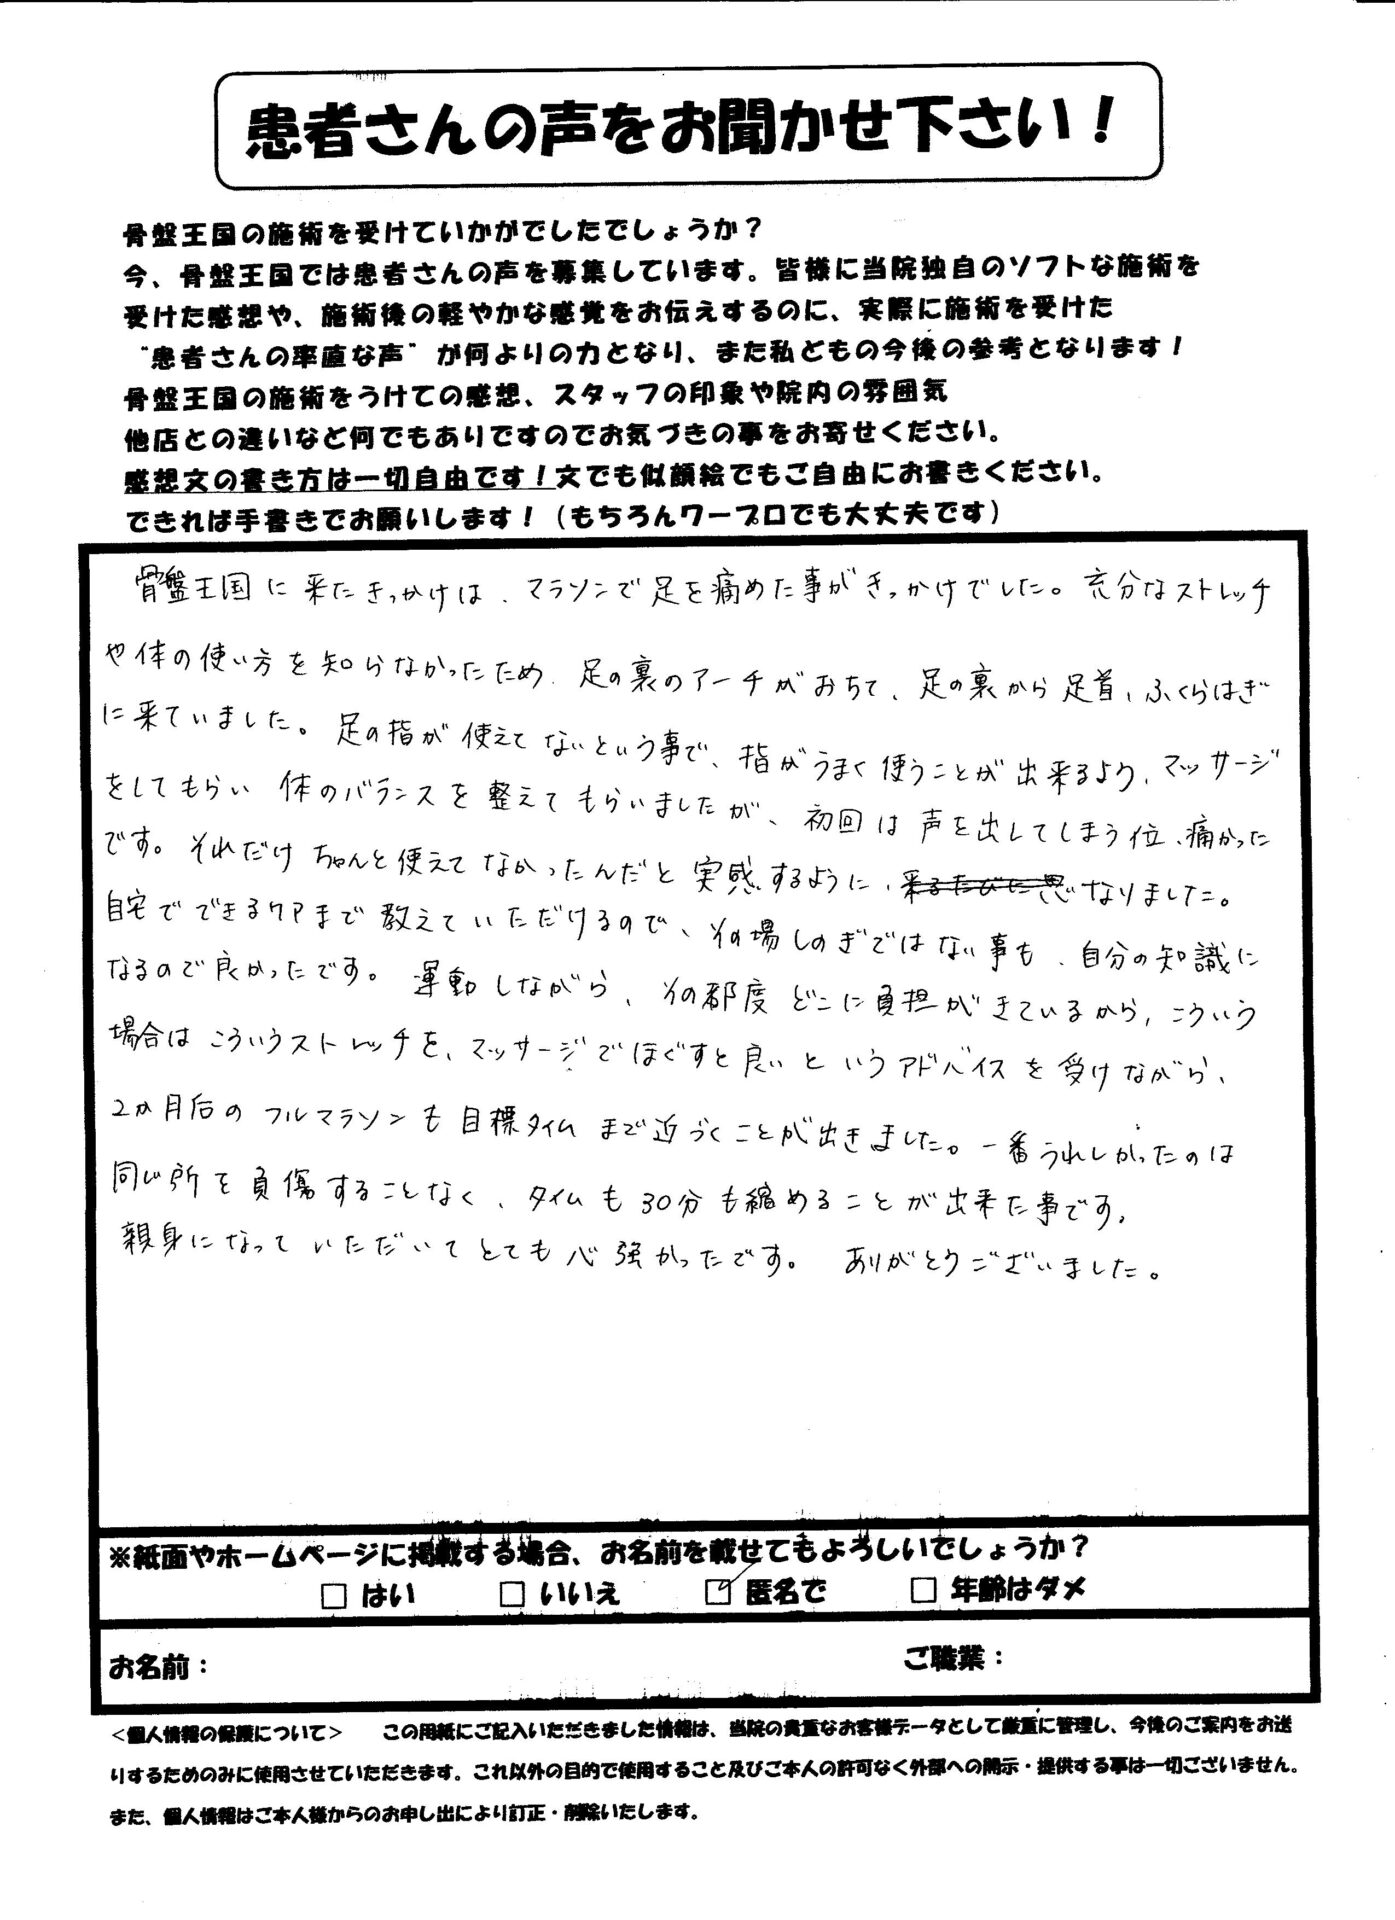 患者さんの声をお聞かせ下さい！
骨盤王国の施術を受けていかがでしたでしょうか？
今、骨盤王国では患者さんの声を募集しています。皆様に当院独自のソフトな施術を
受けた感想や、施術後の軽やかな感覚をお伝えするのに、実際に施術を受けた
“患者さんの率直な声”が何よりの力となり、また私どもの今後の参考となります！
骨盤王国の施術をうけての感想、スタッフの印象や院内の雰囲気
他店との違いなど何でもありですのでお気づきの事をお寄せください。
感想文の書き方は一切自由です！文でも似顔絵でもご自由にお書きください。
できれば手書きでお願いします！（もちろんワープロでも大丈夫です）
骨盤王国に来たきっかけは、マラソンで足を痛めた事がきっかけでした。充分なストレッチ
や体の使い方を知らなかったため、足の裏のアーチがおちて、足の裏から足首、ふくらはぎ
に来ていました。足の指が使えてないという事で、指がうまく使うことが出来るよう、マッサージ
をしてもらい 体のバランスを整えてもらいましたが、初回は声を出してしまう位、痛かった
です。それだけちゃんと使えてなかったんだと実感するように、なりました。
自宅でできるケアまで教えていただけるので、その場しのぎではない事も、自分の知識に
なるので良かったです。運動しながら、その都度どこに負担がきているから、こういう
場合はこういうストレッチを、マッサージでほぐすと良いというアドバイスを受けながら、
2か月后のフルマラソンも目標タイムまで近づくことが出きました。一番うれしかったのは
同じ所を負傷することなく、タイムも30分も縮めることが出来た事です。
親身になっていただいてとても心強かったです。ありがとうございました。
※紙面やホームページに掲載する場合、お名前を載せてもよろしいでしょうか？
□ はい □ いいえ ☑ 匿名で □ 年齢はダメ
お名前： ご職業：
＜個人情報の保護について＞ この用紙にご記入いただきました情報は、当院の貴重なお客様データとして厳重に管理し、今後のご案内をお送
りするためのみに使用させていただきます。これ以外の目的で使用すること及びご本人の許可なく外部への開示・提供する事は一切ございません。
また、個人情報はご本人様からのお申し出により訂正・削除いたします。